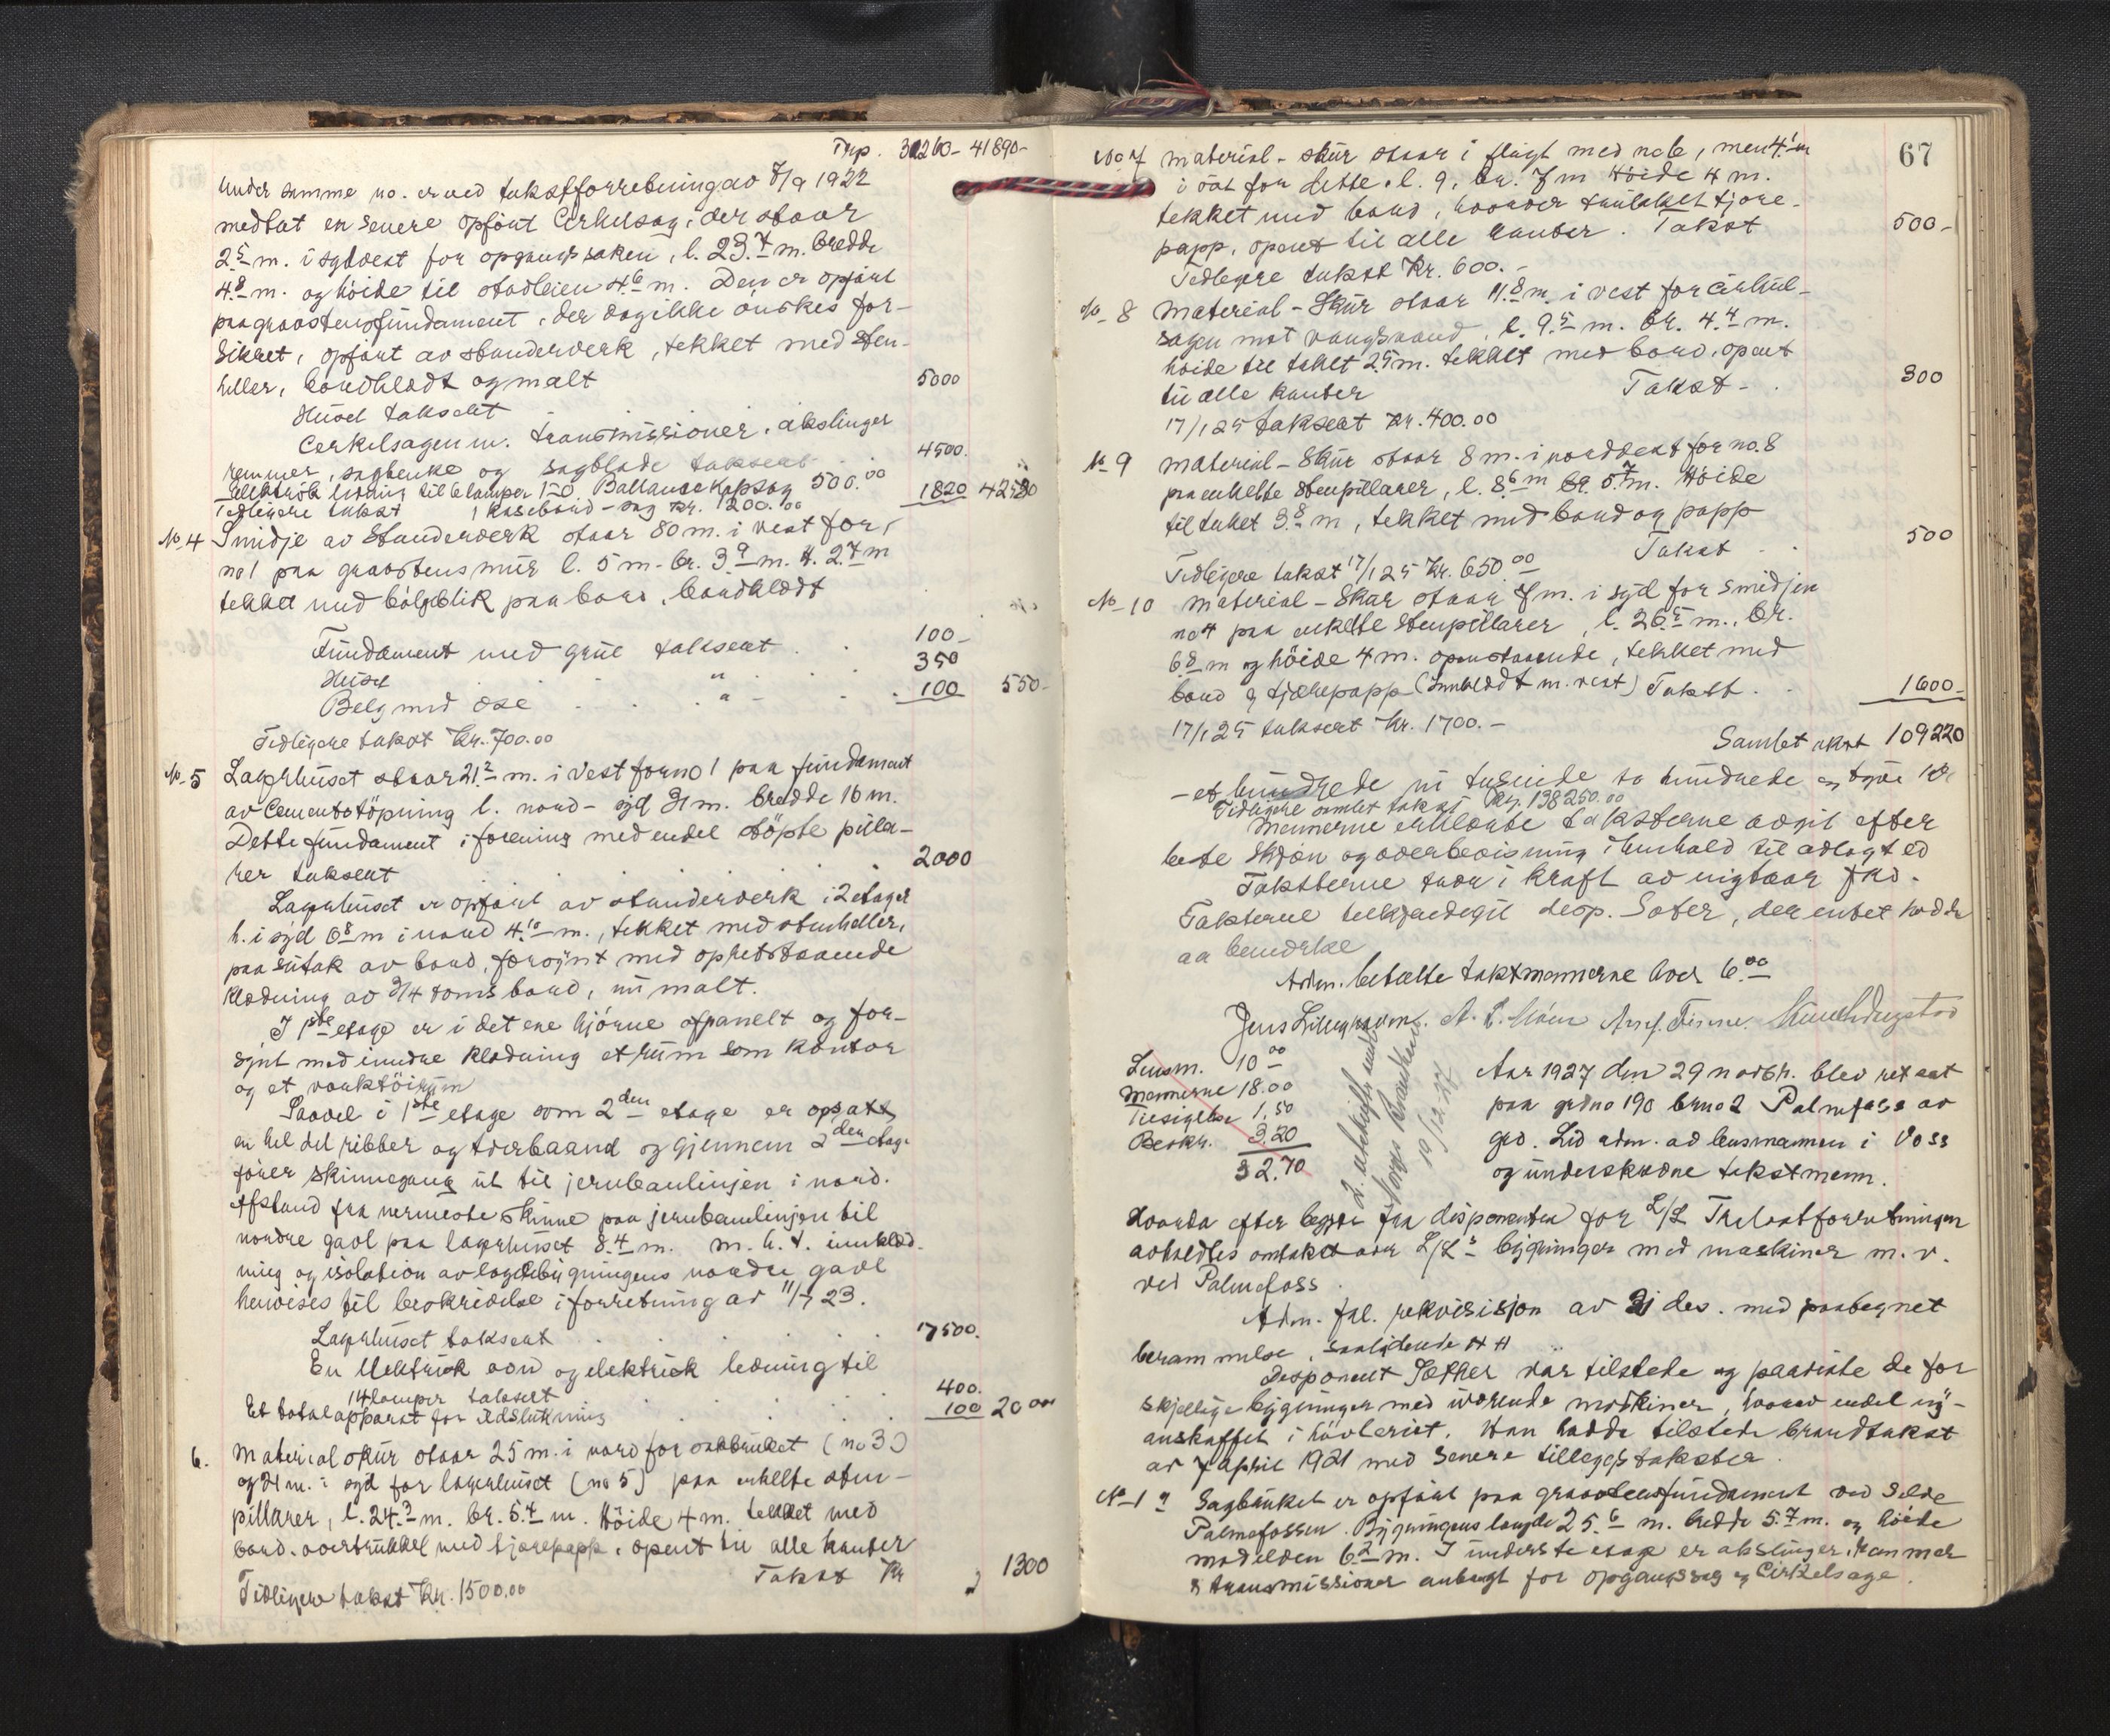 Trp. 30260- 41890-
Under samme no. er ved takstforretning av 7/9 1922
medtat en senere opført Cirkelsag, der staar
2.5 m. i sydvest for opgangssaken, l. 23.7 m. bredde
4.8 m. og höide til stavleien 4.6 m. Den er opfört
paa graastensfundament, der dog ikke önskes for-
sikret, opfört av stenderverk, tekket med sten-
heller, bordklædt og malt 5000
Huset taksert
Cerkelsagen m. transmissioner, akslinger
remmer, sagbenke og sagblade taksert 4500.
Elektrisk ledning til 6 lamper 120. Ballance Kapsag 500.00
Tidligere takst 1 kasebord-sag Kr. 1200.00 1820 42580
No 4 Smidje av Stenderverk staar 80 m. i vest for
no 1 paa graastensmur l. 5 m. br. 3.9 m. H. 2.7 m
tekket med bölgeblik paa bord, bordklædt
Fundament med grue taksert 100-
Huset " 350
Belg med æse " - 100 550-
Tidligere takst Kr. 700.00
No 5 Lagerhuset staar 21.2 m. i vest for no 1 paa fundament
av Cementstöpning l. nord - syd 31 m. bredde 16 m.
Dette fundament i forening med endel stöpte pilla-
rer taksert 2000
Lagerhuset er opfört av stenderverk i 2 etager
h. i syd 6.8 m i nord 4.10 m., tekket med stenheller,
paa sutak av bord, forsynt med ophetstaaende
klædning av 3/4 toms bord, nu malt.
I 1ste etage er i det ene hjörne afpanelt og for-
synt med indre klædning et rum som kontor
og et vaaktöirum
Saavel i 1ste etage som 2den etage er opsatt
en hel del ribber og tverbaand og gjennem 2den etage
förer skinnegang ut til jernbanlinjen i nord.
Afstand fra nærmeste skinne paa jernbanelinjen til
nordre gavl paa lagerhuset 8.4 m. m. h. t. innklæd-
ning og isolation av lagerbygningens nordre gavl
henvises til beskrivelse i forretning av 11/7 23.
Lagerhuset taksert 17500.
En elektrisk ovn og elektrisk ledning til
14 lamper taksert 400.
Et totalapparat for ildslukning 100 20000
6. Materialskur staar 25 m. i nord for sakbruket (no 3)
og 21 m. i syd for lagerhuset (no 5) paa enkelte sten-
pillarer, l. 24.3 m. br. 5.4 m. Höide 4 m. tekket med
bord. overtrukket med tjærepapp, opent til alle kanter
Takst Kr 1300
Tidligere takst Kr. 1500.00
67
No 7 Material-skur staar i flugt med no 6, men 4.1 m
i öst for dette. l. 9. br. 7 m Höide 4 m.
tekket med bord, hvorover trukket tjære-
papp, opent til alle kanter. Takst 500-
Tidligere takst Kr. 600.-
No 8 Material-Skur staar 11.8 m. i vest for cirkul-
sagen mot vangsvand, l. 9.5 m. br. 4.4 m.
höide til taket 2.5 m. tekket med bord, opent
til alle kanter Takst - 300
17/1 25 taksert Kr. 400.00
No 9 Material-Skur staar 8 m. i nordvest for no. 8
paa enkelte stenpillarer, l. 8.6 m br. 5.7 m. Höide
til taket 3.8 m, tekket med bord og papp
Takst 500
Tidligere takst 17/1 25 Kr. 650.00
No 10 Material-Skur staar 8 m. i syd for smidjen
no 4 paa enkelte stenpillarer, l. 26.5 m., br.
6.8 m og höide 4 m. openstaaende, tekket med
bord og tjærepapp (innklædt m. vest) Takst 1600-
17/1 25 taksert Kr. 1700.-
Samlet takst 109220
- et hundrede ni tusinde to hundrede og tyve Kr
Tidligere samlet takst Kr. 138250.00
Mennerne erklærte taksterne avgit efter
beste skjön og overbevisning i henhold til avlagt ed
Taksterne træer i kraft av nigtaar fkd.
Taksterne tilkjendegit disp. Sæter, der intet hadde
aa bemærke
Adm. betalte takstmennerne hver 6.00
Jens Lilleg
Lensm. 10.00
Mennerne 18.00
Tilsigelse 1.50
Beskr. 3.20
32.70
2 utskrift sendt
Norges Brandkasse
19/12-27
Aar 1927 den 29 novbr. blev ret sat
paa grdno 190 brno 2 Palmefoss av
grd. Lid adm. av lensmannen i Voss
og underskrevne takstmenn.
Hvorda efter begjær fra disponenten for L/L Trelastforretningen
avholdtes omtakst over L/L s bygninger med maskiner m. v.
ved Palmefoss.
Adm. frl. rekvisisjon av 21 ds. med paategnet
berammelse, saalydende ++
Disponent Sæther var tilstede og paaviste de for
skjellige bygninger med iværende maskiner, hvorav endel ny-
anskaffet i hövleriet. Han hadde tilstede brandtakst
av 7 april 1921 med senere tilleggstakster.
No 1. Sagbruket er opfört paa graastensfundament ved Selde
Palmafossen. Bygningens længde 25.6 m. bredde 5.7 m. og höide
mod elden 6.2 m. I underste etage er akslinger, kammer
& transmissioner anbragt for opgangssag og Cirkelsage.